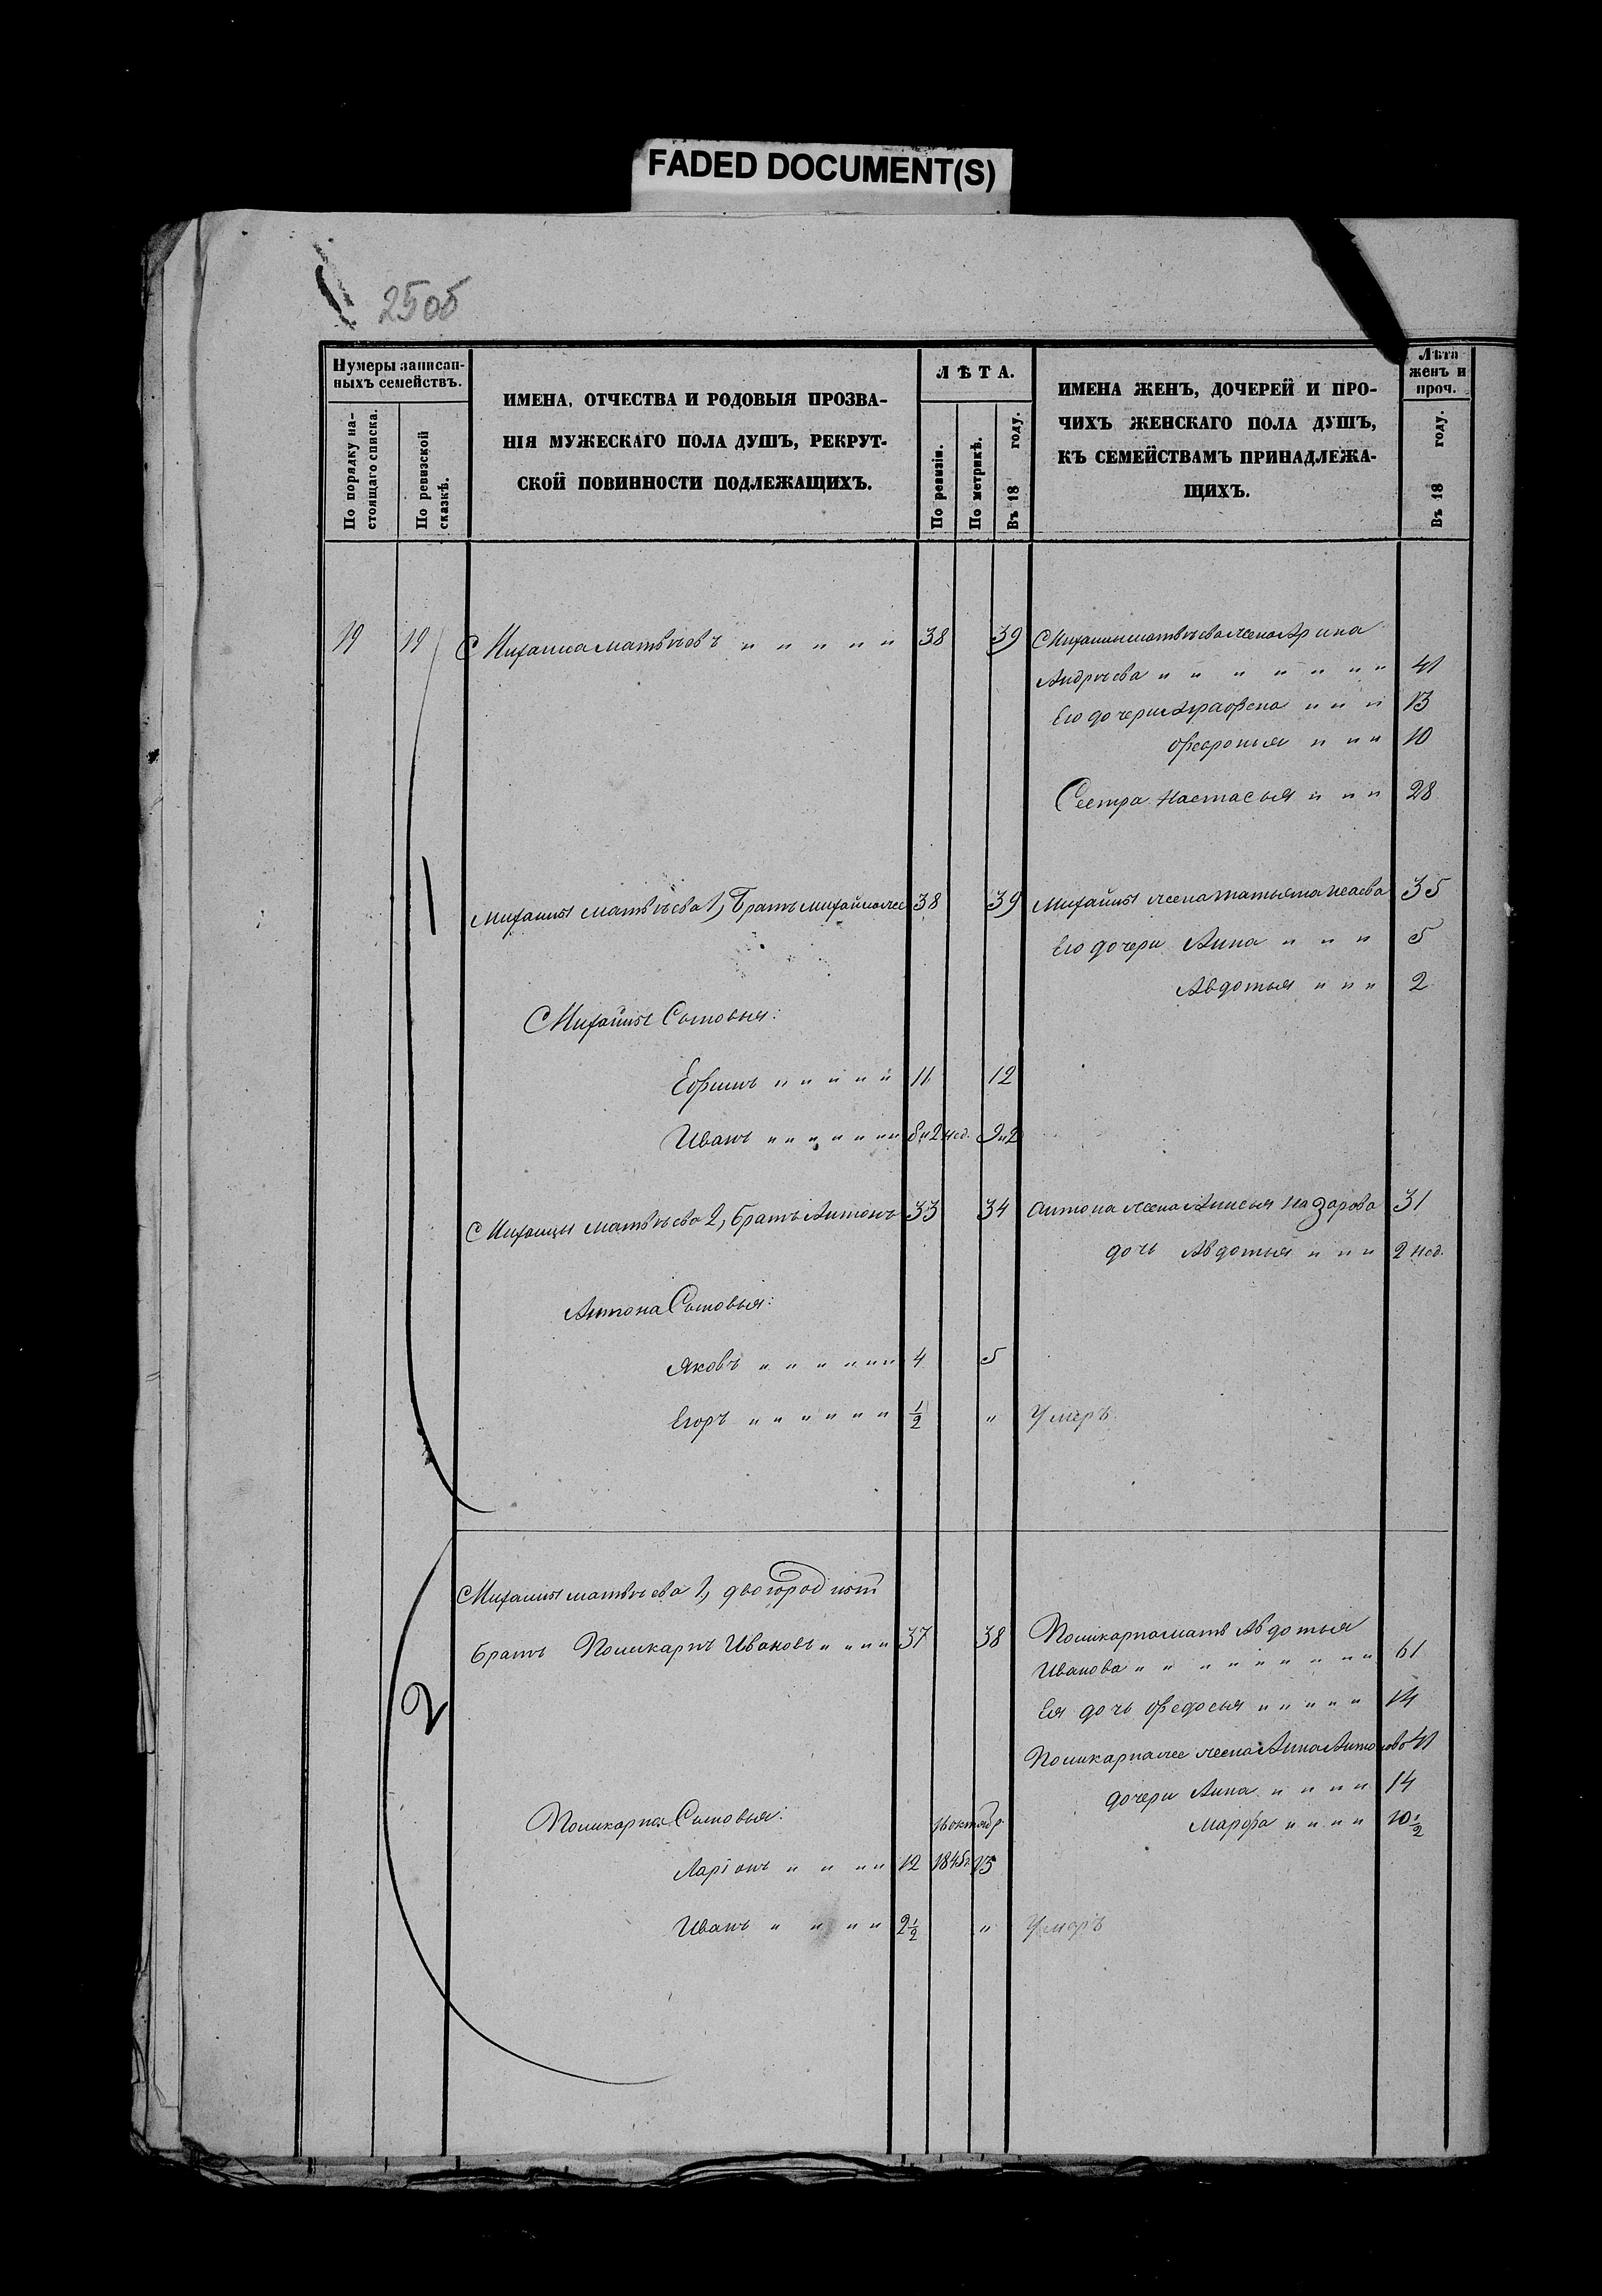 FADED DOCUMENT(S)
25об
Нумеры записан-
ныхъ семействъ.
По порядку на-
стоящаго списка.
По ревизской
сказкѣ.
ИМЕНА, ОТЧЕСТВА И РОДОВЫЯ ПРОЗВА-
НІЯ МУЖЕСКАГО ПОЛА ДУШЪ, РЕКРУТ-
СКОЙ ПОВИННОСТИ ПОДЛЕЖАЩИХЪ.
ЛѢТА.
По ревизіи.
По метрикѣ.
Въ 18 году.
ИМЕНА ЖЕНЪ, ДОЧЕРЕЙ И ПРО-
ЧИХЪ ЖЕНСКАГО ПОЛА ДУШЪ,
КЪ СЕМЕЙСТВАМЪ ПРИНАДЛЕЖА-
ЩИХЪ.
Лѣта
женъ и
проч.
Въ 18 году.
19 19 Михайла Матвѣевъ " " " " " 38 39 Михайлы Матвѣева жена Арина
Андрѣева " " " " " " " 41
Его дочери Аграфена " " " 13
Федронья " " " 10
Сестра Настасья " " " 28
1
Михайлы Матвѣева 1, Братъ Михайла же 38 39 Михайлы жена Татьяна Исаева 35
Его дочери Анна " " " 5
Авдотья " " " 2
Михайлы Сыновья:
Ефимъ " " " " " 11 12
Иванъ " " " " " " " 8 и 2 нед. 9 и 2
Михайлы Матвѣева 2, братъ Антонъ 33 34 Антона жена Анисья Назарова 31
дочь Авдотья " " " 2 нед.
Антона Сыновья:
Яковъ " " " " " " " 4 5
Егоръ " " " " " " 1/2 " Умеръ
Михайлы Матвѣева 1, двоюродный
братъ Поликарпъ Ивановъ " " " " 37 38 Поликарпа мать Авдотья
Иванова " " " " " " " " " 61
2
Ея дочь Федосья " " " " " 14
Поликарпа же жена Анна Антонова 41
дочери Анна " " " " 14
Поликарпа Сыновья: 16 октябр. Марфа " " " " 10 1/2
Ларіонъ " " " " 12 1845г. 13
Иванъ " " " " 2 1/2 " Умеръ